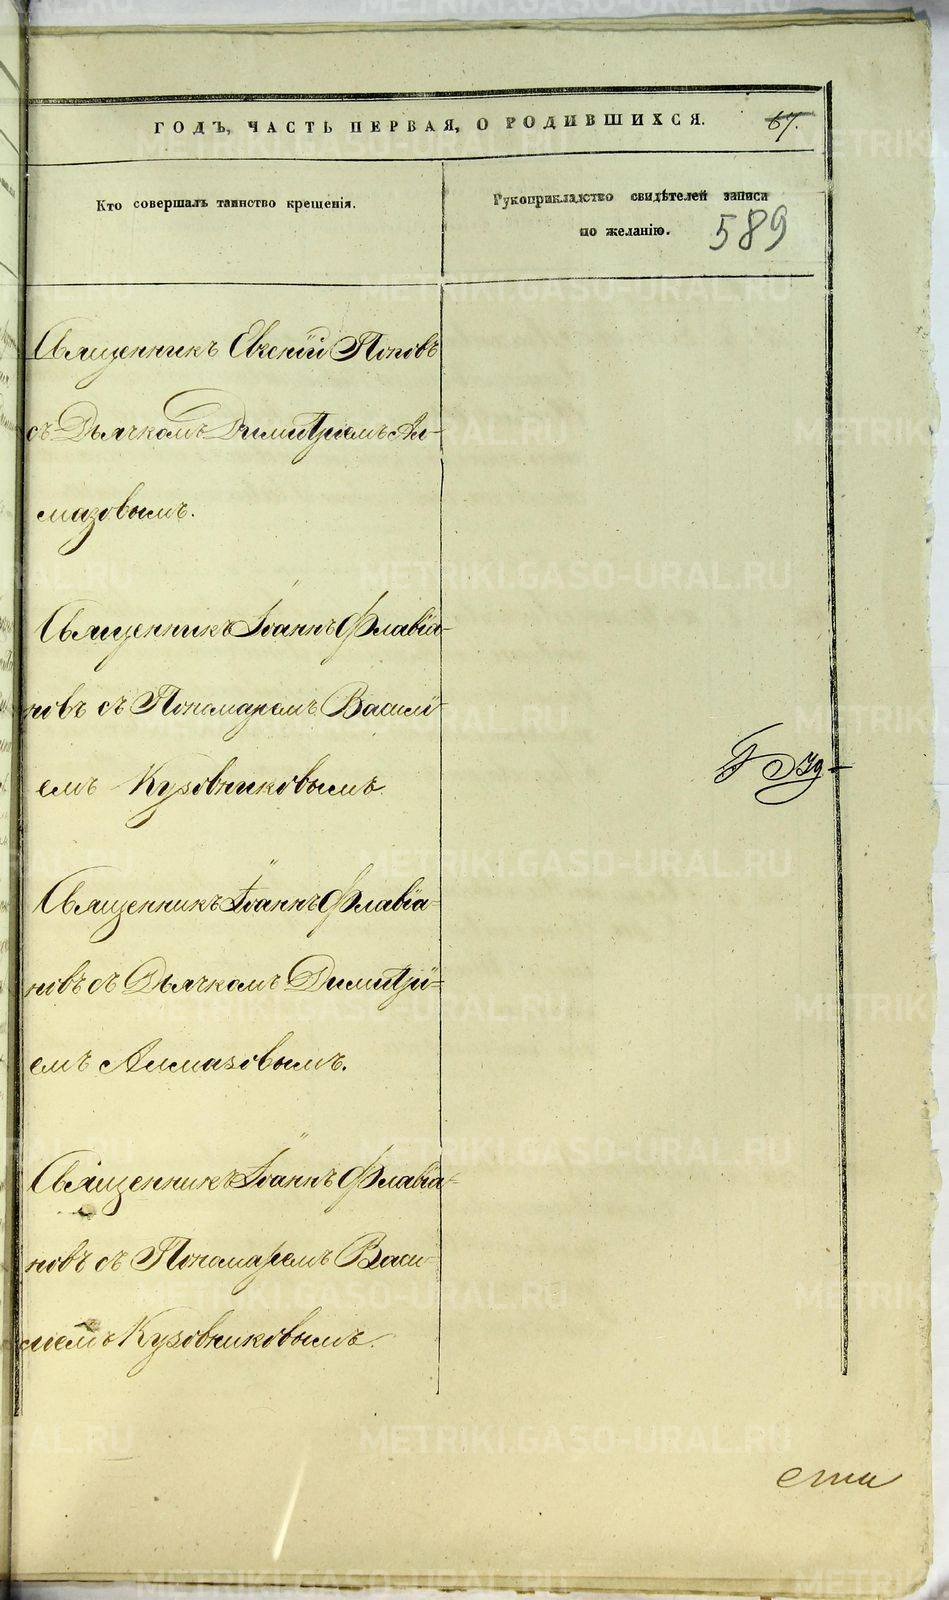 ГОДЪ, ЧАСТЬ ПЕРВАЯ, О РОДИВШИХСЯ. 67.
Кто совершалъ таинство крещенія.
Рукоприкладство свидѣтелей записи
по желанію.
589
Священникъ Евгеній Поповъ
съ Дьячкомъ Димитріемъ Ал-
мазовымъ.
Священникъ Іоаннъ Флавіа-
новъ съ Пономаремъ Василі-
емъ Кузовниковымъ.
Священникъ Іоаннъ Флавіа-
новъ съ Дьячкомъ Димитрі-
емъ Алмазовымъ.
Священникъ Іоаннъ Флавіа-
новъ съ Пономаремъ Васи-
ліемъ Кузовниковымъ.
METRIKI.GASO-URAL.RU